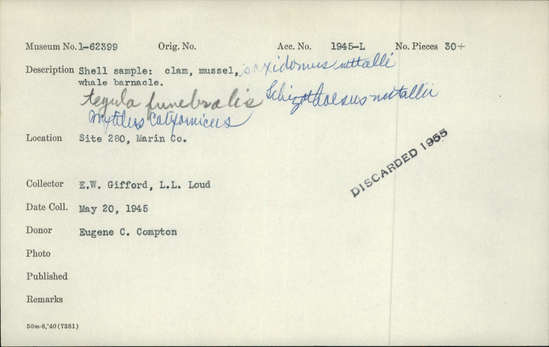 Museum No. 1-62399 Orig. No. Acc. No. 1945-L No. Pieces 30+
Description Shell sample: clam, mussel, saxidomus nuttalli
whale barnacle.
tegula funebralis Schizothaerus nuttallii
Mytilus Californicus
Location Site 280, Marin Co.
DISCARDED 1955
Collector E.W. Gifford, L.L. Loud
Date Coll. May 20, 1945
Donor Eugene C. Compton
Photo
Published
Remarks
50m-8,'40(7381)